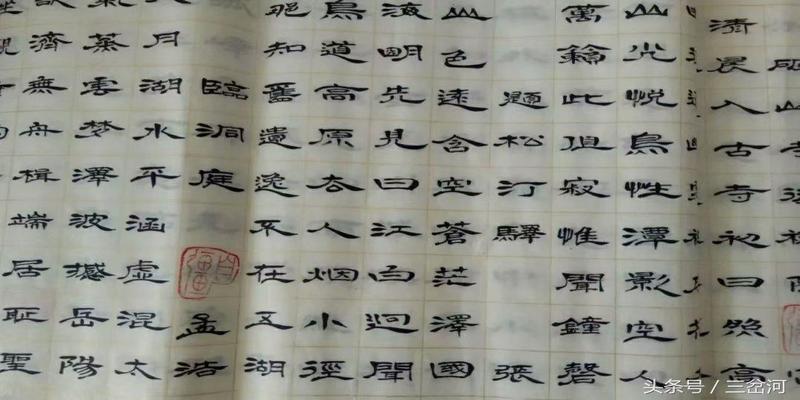 山寺
清晨入古寺初日照高
山光悅鳥性潭影空人
萬籟此俱寂惟聞鐘磬
題松汀驛 張
山色遠含空蒼茫澤國
海明先見日江白迥聞
鳥道高原去人烟小徑
那知舊遺逸不在五湖
臨洞庭 孟浩
月湖水平涵虛混太
氣蒸雲夢澤波撼岳陽
欲濟無舟楫端居恥聖
頭条号／三岔河